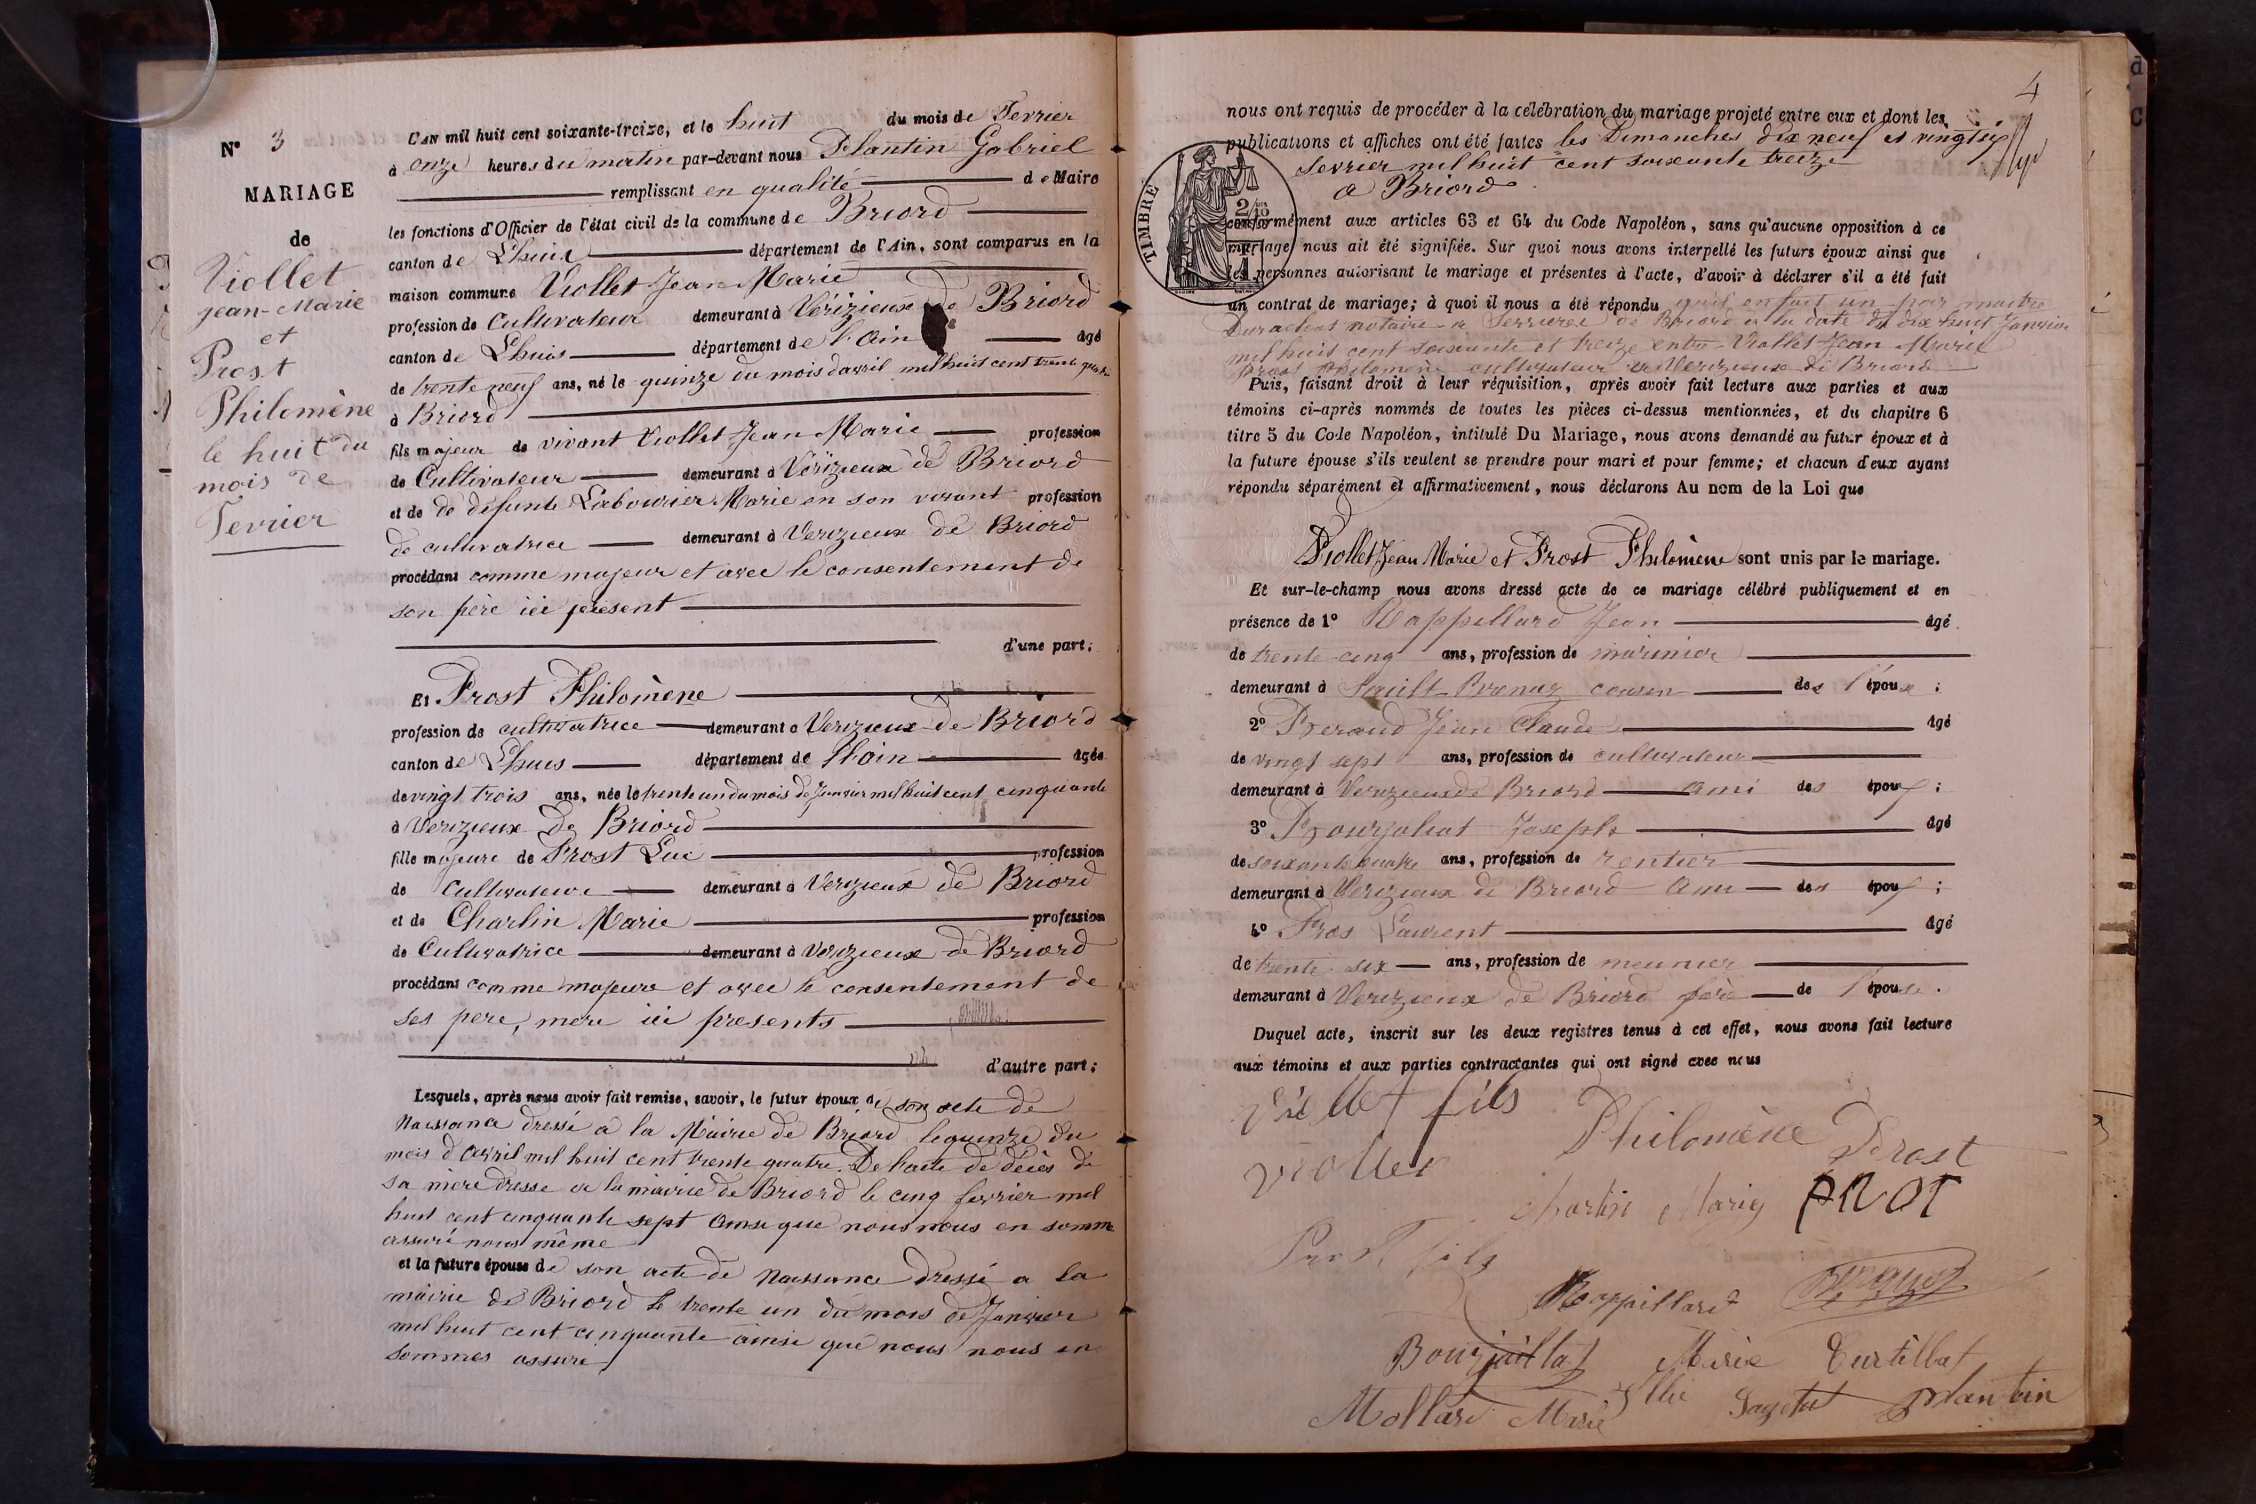 N° 3
MARIAGE
de
Viollet
Jean-Marie
et
Prost
Philomène
le huit du
mois de
Fevrier
L'AN mil huit cent soixante-treize, et le huit du mois de Fevrier
à onze heures du matin par-devant nous Plantin Gabriel
remplissant en qualité de Maire
les fonctions d'Officier de l'état civil de la commune de Briord
canton de Lhuis département de l'Ain, sont comparus en la
maison commune Viollet Jean Marie
profession de Cultivateur demeurant à Vérizieux de Briord
canton de Lhuis département de l'Ain âgé
de trente neuf ans, né le quinze du mois d'avril mil huit cent trente quatre
à Briord
fils majeur de vivant Viollet Jean Marie profession
de Cultivateur demeurant à Vérizieux de Briord
et de de défunte Labourier Marie en son vivant profession
de cultivatrice demeurant à Verizieux de Briord
procédant comme majeur et avec le consentement de
son père ici présent
d'une part;
Et Prost Philomène
profession de cultivatrice demeurant à Verizieux de Briord
canton de Lhuis département de l'Ain âgée
de vingt trois ans, née le trente un du mois de Janvier mil huit cent cinquante
à Verizieux de Briord
fille majeure de Prost Luc profession
de Cultivateur demeurant à Verizieux de Briord
et de Charlin Marie profession
de Cultivatrice demeurant à Verizieux de Briord
procédant comme majeure et avec le consentement de
ses pere, mere ici presents
d'autre part;
Lesquels, après nous avoir fait remise, savoir, le futur époux de son acte de
Naissance dressé a la Mairie de Briord le quinze du
mois d'avril mil huit cent trente quatre. De l'acte de décès de
sa mère dressé a la mairie de Briord le cinq fevrier mil
huit cent cinquante sept ainsi que nous nous en somme
assuré nous même
et la future épouse de son acte de Naissance dressé a la
mairie de Briord le trente un du mois de Janvier
mil huit cent cinquante ainsi que nous nous en
sommes assuré
4
nous ont requis de procéder à la célébration du mariage projeté entre eux et dont les
publications et affiches ont été faites les Dimanches dix neuf et vingt six
fevrier mil huit cent soixante treize
a Briord
TIMBRE
2/10
conformément aux articles 63 et 64 du Code Napoléon, sans qu'aucune opposition à ce
mariage nous ait été signifiée. Sur quoi nous avons interpellé les futurs époux ainsi que
les personnes autorisant le mariage et présentes à l'acte, d'avoir à déclarer s'il a été fait
un contrat de mariage; à quoi il nous a été répondu qu'il en fait un par maitre
notaire a Serrieres de Briord a la date du dix huit Janvier
mil huit cent soixante et treize entre Viollet Jean Marie
Prost Philomène cultivateur a Verizieux de Briord
Puis, faisant droit à leur réquisition, après avoir fait lecture aux parties et aux
témoins ci-après nommés de toutes les pièces ci-dessus mentionnées, et du chapitre 6
titre 5 du Code Napoléon, intitulé Du Mariage, nous avons demandé au futur époux et à
la future épouse s'ils veulent se prendre pour mari et pour femme; et chacun d'eux ayant
répondu séparément et affirmativement, nous déclarons Au nom de la Loi que
Viollet Jean Marie et Prost Philomène sont unis par le mariage.
Et sur-le-champ nous avons dressé acte de ce mariage célébré publiquement et en
présence de 1° Rappillard Jean âgé
de trente-cinq ans, profession de marinier
demeurant à Sault Brenaz cousin de l'épouse;
2° Beraud Jean Claude âgé
de vingt sept ans, profession de cultivateur
demeurant à Verizieux de Briord ami des époux;
3° Joseph âgé
de soixante quatre ans, profession de rentier
demeurant à Verizieux de Briord ami des époux;
4° Pros Laurent âgé
de trente-six ans, profession de meunier
demeurant à Verizieux de Briord de l'épouse.
Duquel acte, inscrit sur les deux registres tenus à cet effet, nous avons fait lecture
aux témoins et aux parties contractantes qui ont signé avec nous
Viollet fils
Philomène Prost
Viollet
Charlin Marie PROT
Prost fils
Rappillard
Bourjaillat Marie Curtillat
Mollard Marie Plantin